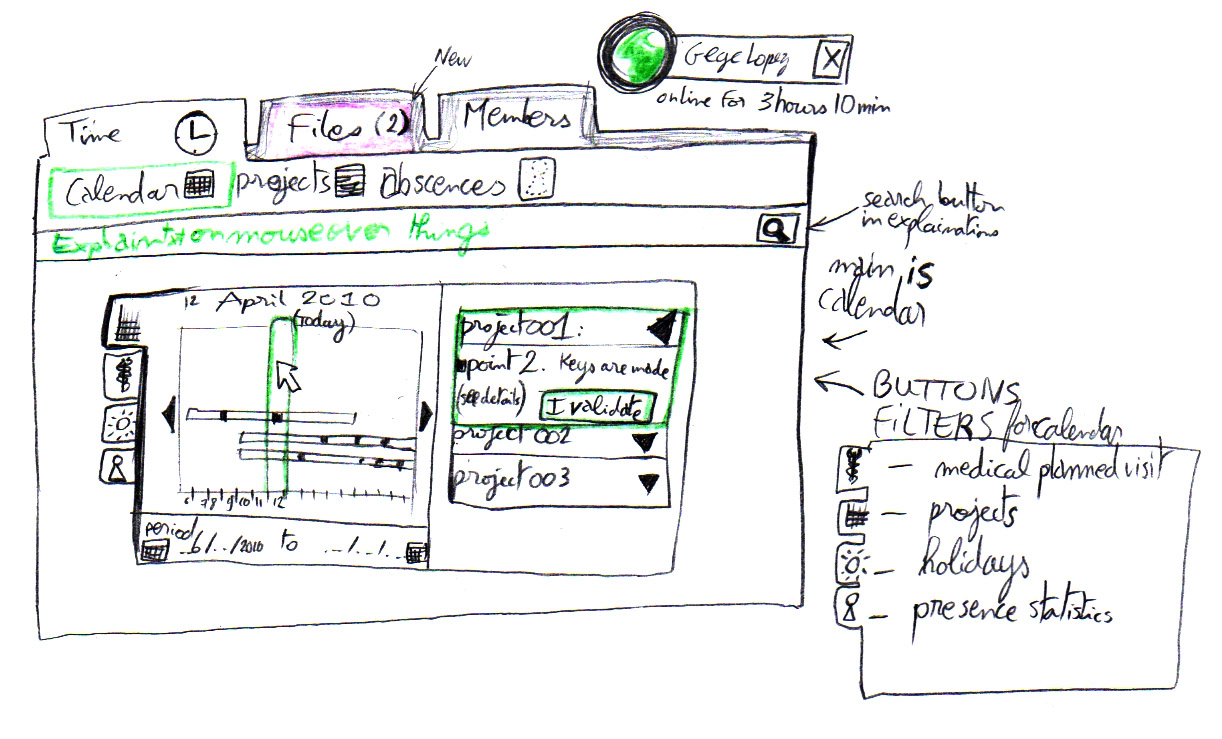 New
Gege Lopez X
online for 3 hours 10 min
Time
Files (2)
Members
Calendar
projects
Abscences
on mouse over things
search button
in explainations
main is
calendar
12 April 2010
(Today)
project 001:
point 2. Keys are made
(see details) I validate
project 002
project 003
6 7 8 9 10 11 12
period
6/../2010 to ../../..
BUTTONS
FILTERS for calendar
– medical planned visit
– projects
– holidays
– presence statistics